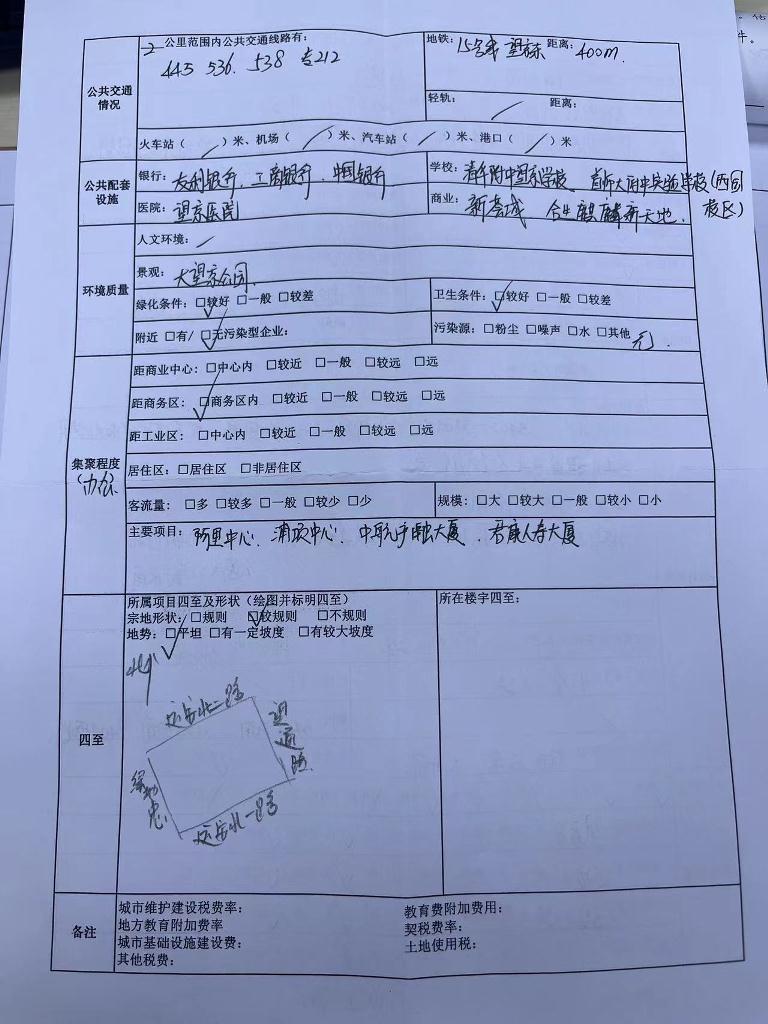 2 公里范围内公共交通线路有：
445 536. 538 专212
地铁：15号线 望京东 距离：400m.
公共交通情况
轻轨： / 距离：
火车站（ / ）米、机场（ / ）米、汽车站（ / ）米、港口（ / ）米
公共配套设施
银行：友利银行、工商银行、中国银行
学校：清华附中国际学校、首师大附中实验学校(西园校区)
医院：望京医院
商业：新荟城 合生麒麟新天地.
环境质量
人文环境： /
景观：大望京公园
绿化条件：☑较好 □一般 □较差
卫生条件：☑较好 □一般 □较差
附近 □有/ ☑无污染型企业：
污染源：□粉尘 □噪声 □水 □其他 无.
集聚程度（办公）
距商业中心：□中心内 □较近 □一般 □较远 □远
距商务区：☑商务区内 □较近 □一般 □较远 □远
距工业区：□中心内 □较近 □一般 □较远 □远
居住区：□居住区 □非居住区
客流量：□多 □较多 □一般 □较少 □少
规模：□大 □较大 □一般 □较小 □小
主要项目：阿里中心、浦项中心、中航产融大厦、君康人寿大厦
四至
所属项目四至及形状（绘图并标明四至）
宗地形状：□规则 ☑较规则 □不规则
地势：☑平坦 □有一定坡度 □有较大坡度
北
所在楼宇四至：
望通路
备注
城市维护建设税费率：
教育费附加费用：
地方教育附加费率
契税费率：
城市基础设施建设费：
土地使用税：
其他税费：